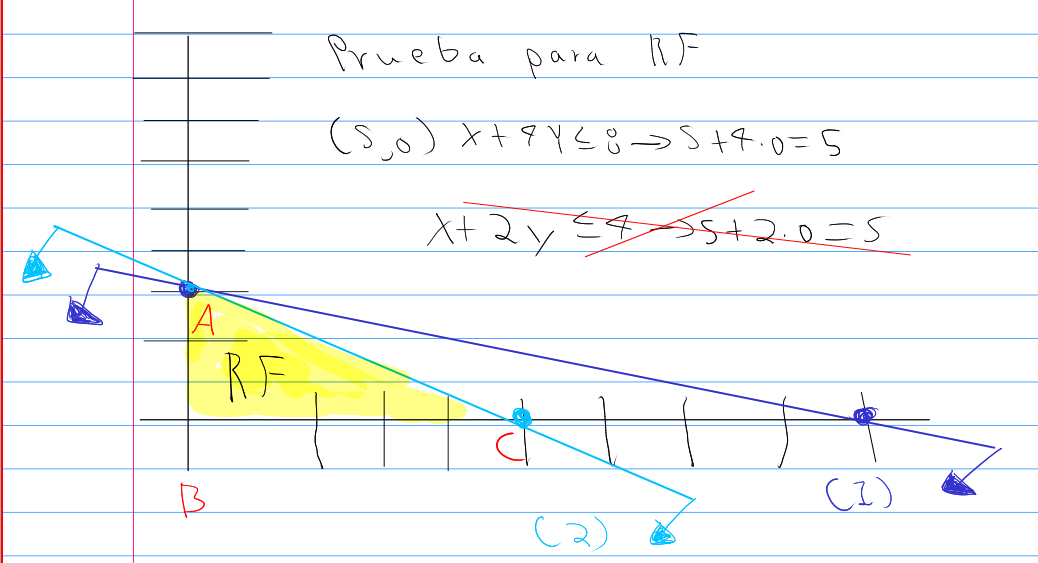 Prueba para RF
(5,0) x+4y≤8→5+4·0=5
x+2y≤4→5+2·0=5
A
RF
C
B
(1)
(2)